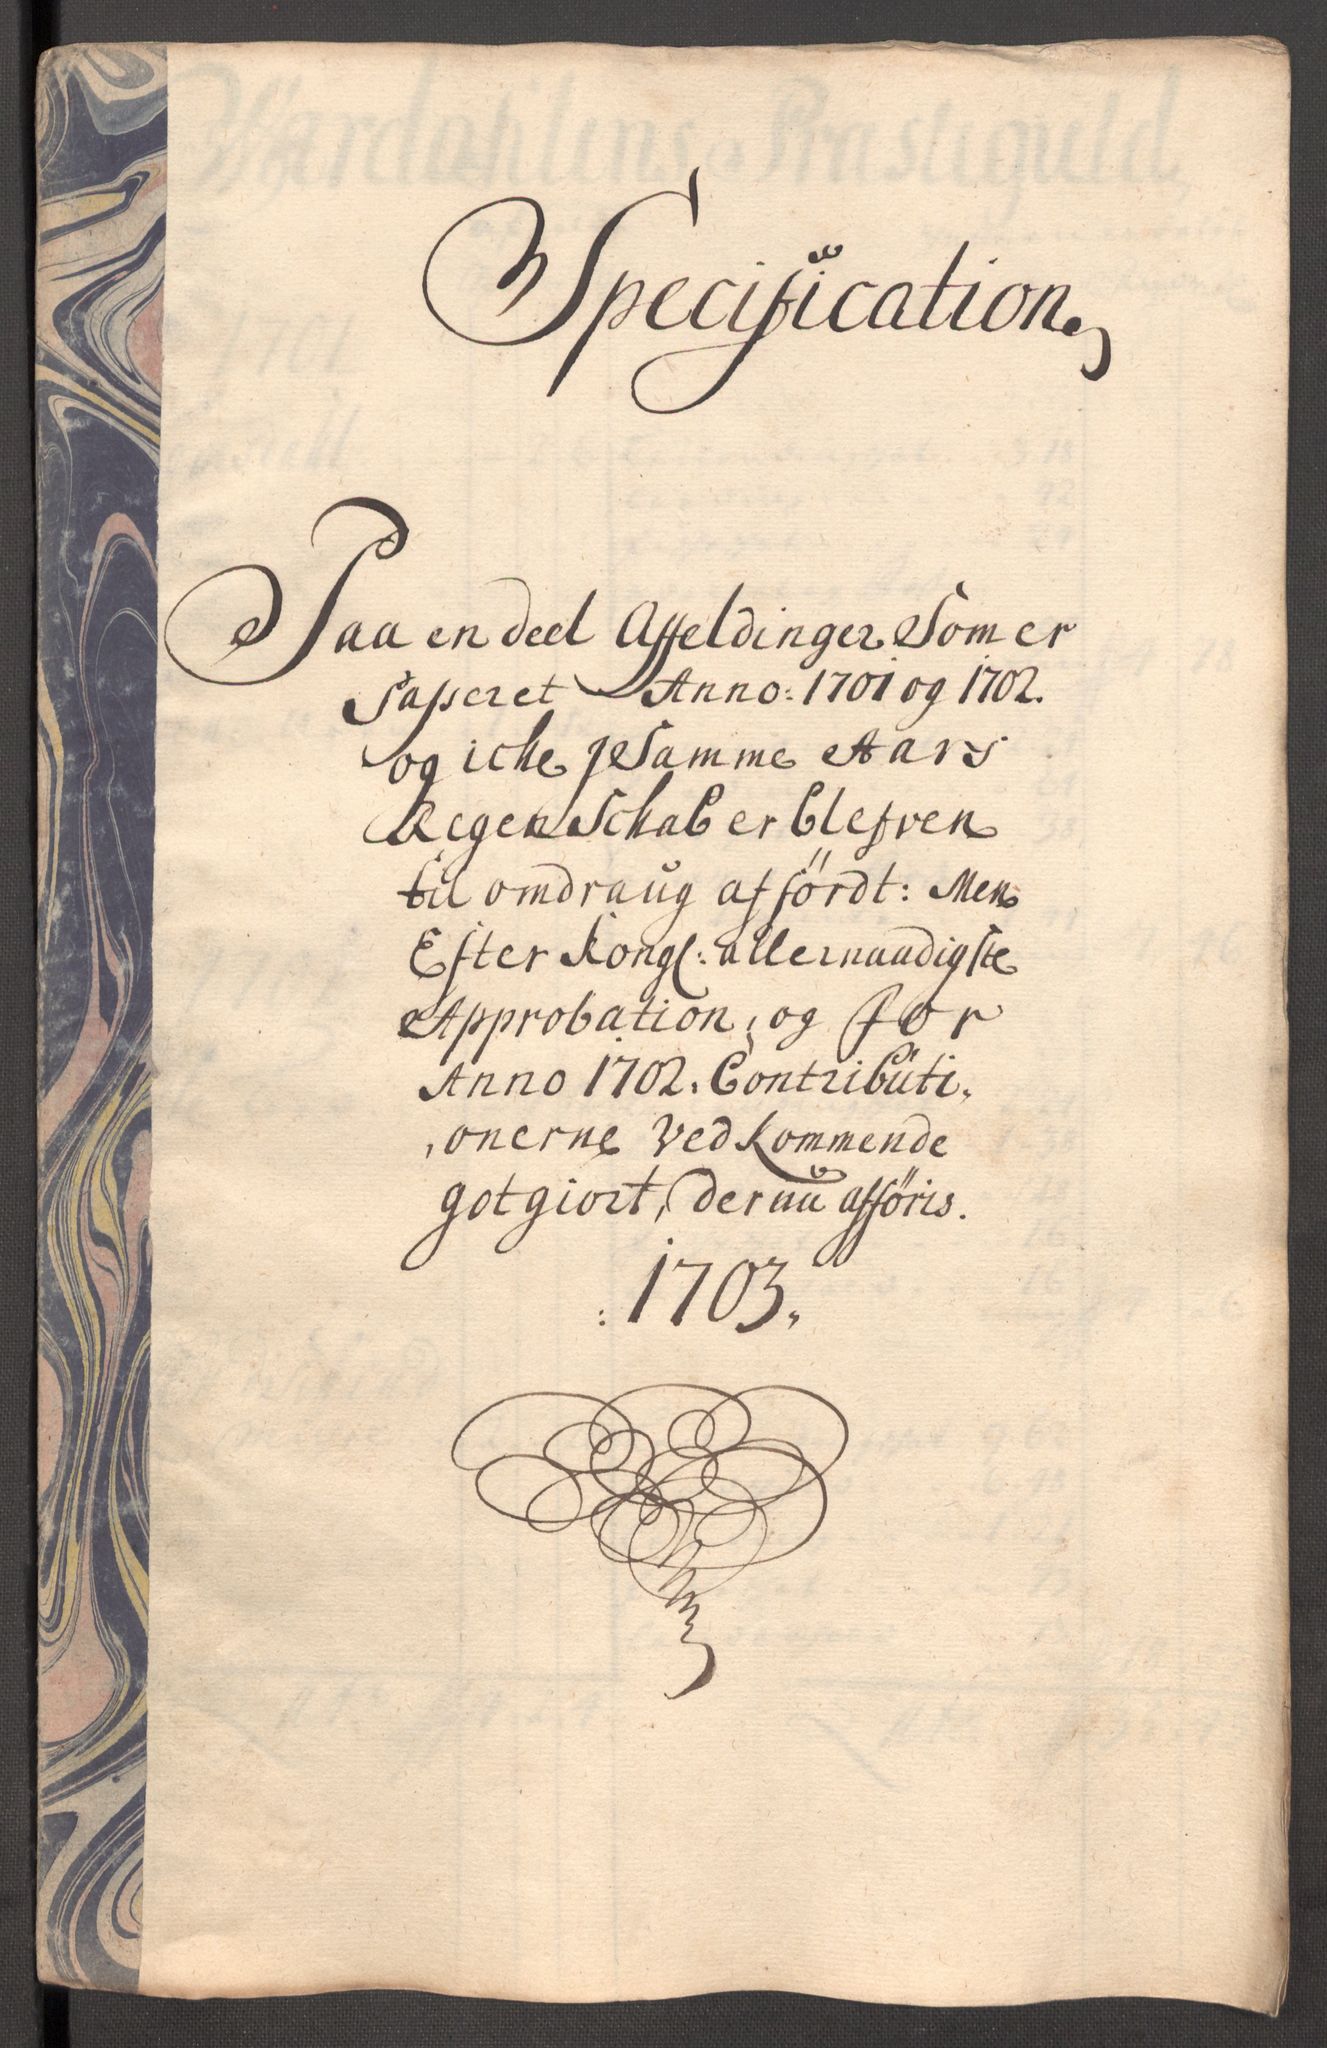 Specification
Paa en deel Affeldinger Som er
Passeret Anno: 1701 og 1702.
og icke J Samme Aars
Regenschaber blefven
til omdraug afført: Men
Efter Kongl: allernaadigste
Approbation, og for
Anno 1702. Contributi,
,onerne Vedkommende
gotgiort, der nu afføris.
: 1703.